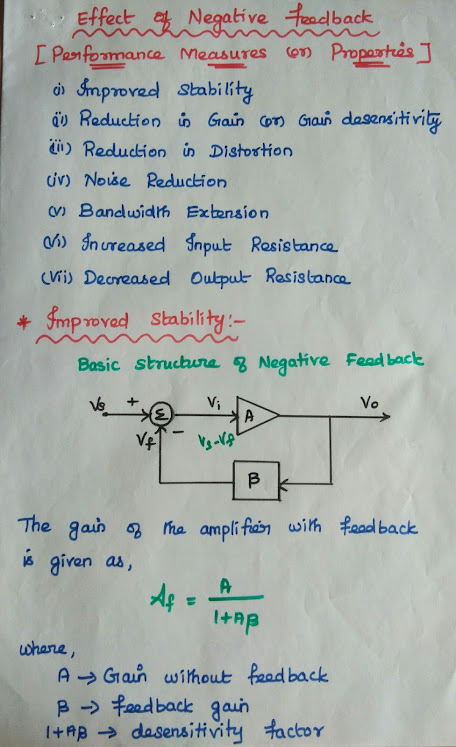 Effect of Negative feedback
[Performance Measures (or) Properties]
(i) Improved stability
(ii) Reduction in Gain (or) Gain desensitivity
(iii) Reduction in Distortion
(iv) Noise Reduction
(v) Bandwidth Extension
(vi) Increased Input Resistance
(vii) Decreased Output Resistance
* Improved stability:-
Basic structure of Negative Feedback
Vs + Σ Vi A Vo
Vf - Vs-Vf
β
The gain of the amplifier with feedback
is given as,
Af = A / 1+Aβ
where,
A → Gain without feedback
β → feedback gain
1+Aβ → desensitivity factor